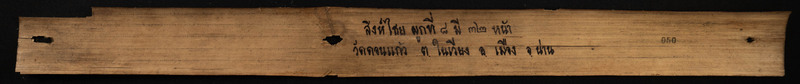 สิงห์ไชย ผูกที่ ๘ มี ๓๒ หน้า
วัดดอนแก้ว ต ในเวียง อ เมือง จ น่าน